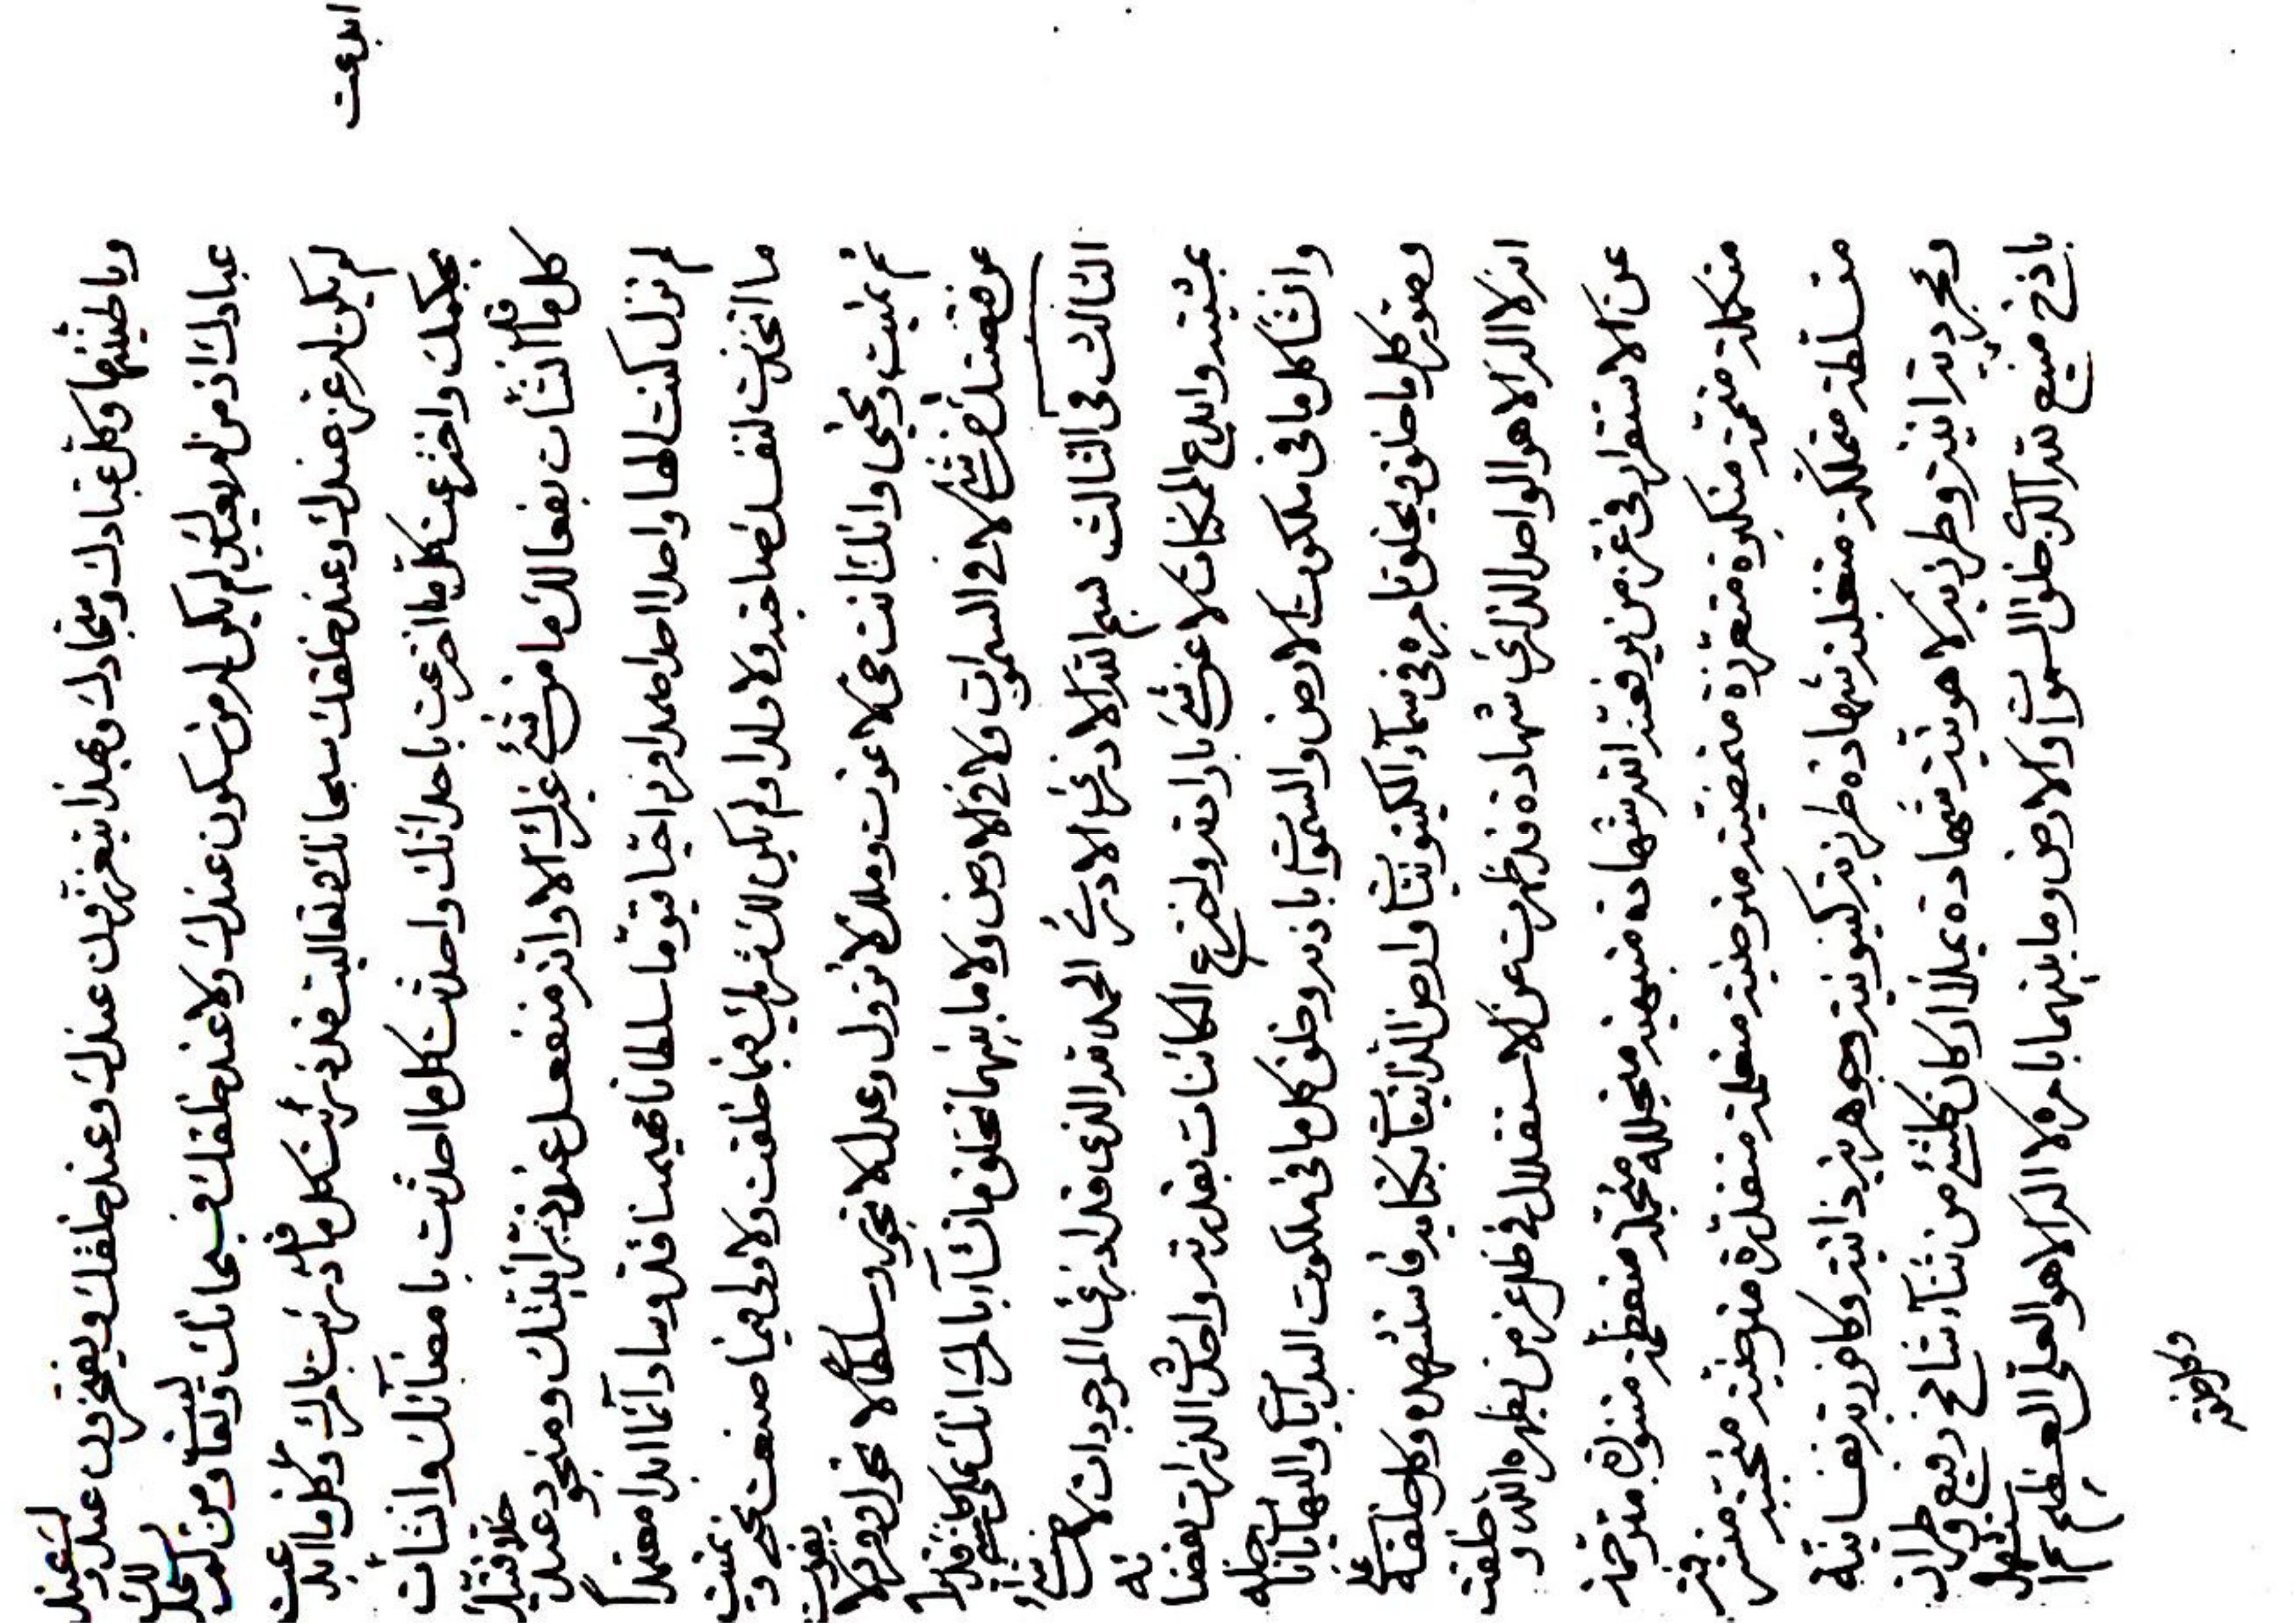 وباطنيتها وكل عبادك ومتجادك وبهذا يتعززون عندك وعند خلقك ويفتخرون عندك
عبادك اذ من لم يعبدك لم يكن له من سكون عندك ولا عند خلقك فسبحانك وتعاليت ومن لم يسجد لك
لم يكن له عز عندك وعند خلقك سبحانك وتعاليت قد ذرئت كل ما قد ذرئت بامرك وكل ما ابدعت
ابدعت
بحكمك واخترعت كل ما اخترعت باحداثك واحدثت كل ما احدثت بامضآئك وانشأت
كل ما قد انشأت بفعالك ما من شئ غيرك الا وانه منفعل عند ومنوجد عند خلاقيتك
لم تزل كنت الها واحدا احدا صمدا وترا حيا قيوما سلطانا مهيمنا قدوسا دآئما ابدا معتمدا
ما اتخذت لنفسك صاحبة ولا ولدا ولم يكن لك شريك فيما خلقت ولا ولى فيما صنعت تحيى وتميت
ثم تميت وتحيى وانك انت حى لا تموت وملك لا تزول وعدل لا تجور وسلطان لا تحول وفرد لا يفوت
عن قبضتك من شئ لا فى السموات ولا فى الارض ولا ما بينهما تخلق ما تشآء بامرك انك كنت على كلشئ قديرا
الثالث فى الثالث بسم الله الادرء الادرء الحمد لله الذى قد ادرء الموجودات لا من شئ
بمشيته وابدع الممكنات لا عن شئ بارادته واخترع الكائنات بقدرته واحدث الذرات بقضائه
وانشأ كل ما فى ملكوت الارض والسموات باذنه وخلق كل ما فى ملكوت البدايات والنهايات
وصور كل ما خلق ويخلق بامره فى سمآء الكينونيات وارض الذاتيات بكتابه فاستشهده وكل خلقه على
انه لا اله الا هو الواحد شهادة قد ظهرت عن الاستقلال فى ظل عز من يظهره الله وخلقت
عن الاستقرار فى عز من يرفعنه الله شهادة متجللة متعظمة متنورة مترحمة
متكملة متممة متكبرة متعززة متمضية مترضية متعلمة متقدرة مترضية متحببة متشرفة
متسلطة متملكة شهادة طرزية كينونية وجوهرية ذاتية وكافورية نفسانية
ومجردية انية وطرزية لاهوتية شهادة يملأ اركان كلشئ من ثنآء شامخ رفيع وطراز
باذخ منيع لله الذى خلق السموات والارض وما بينهما بامره لا اله الا هو العلى العظيم
وكل خلقه